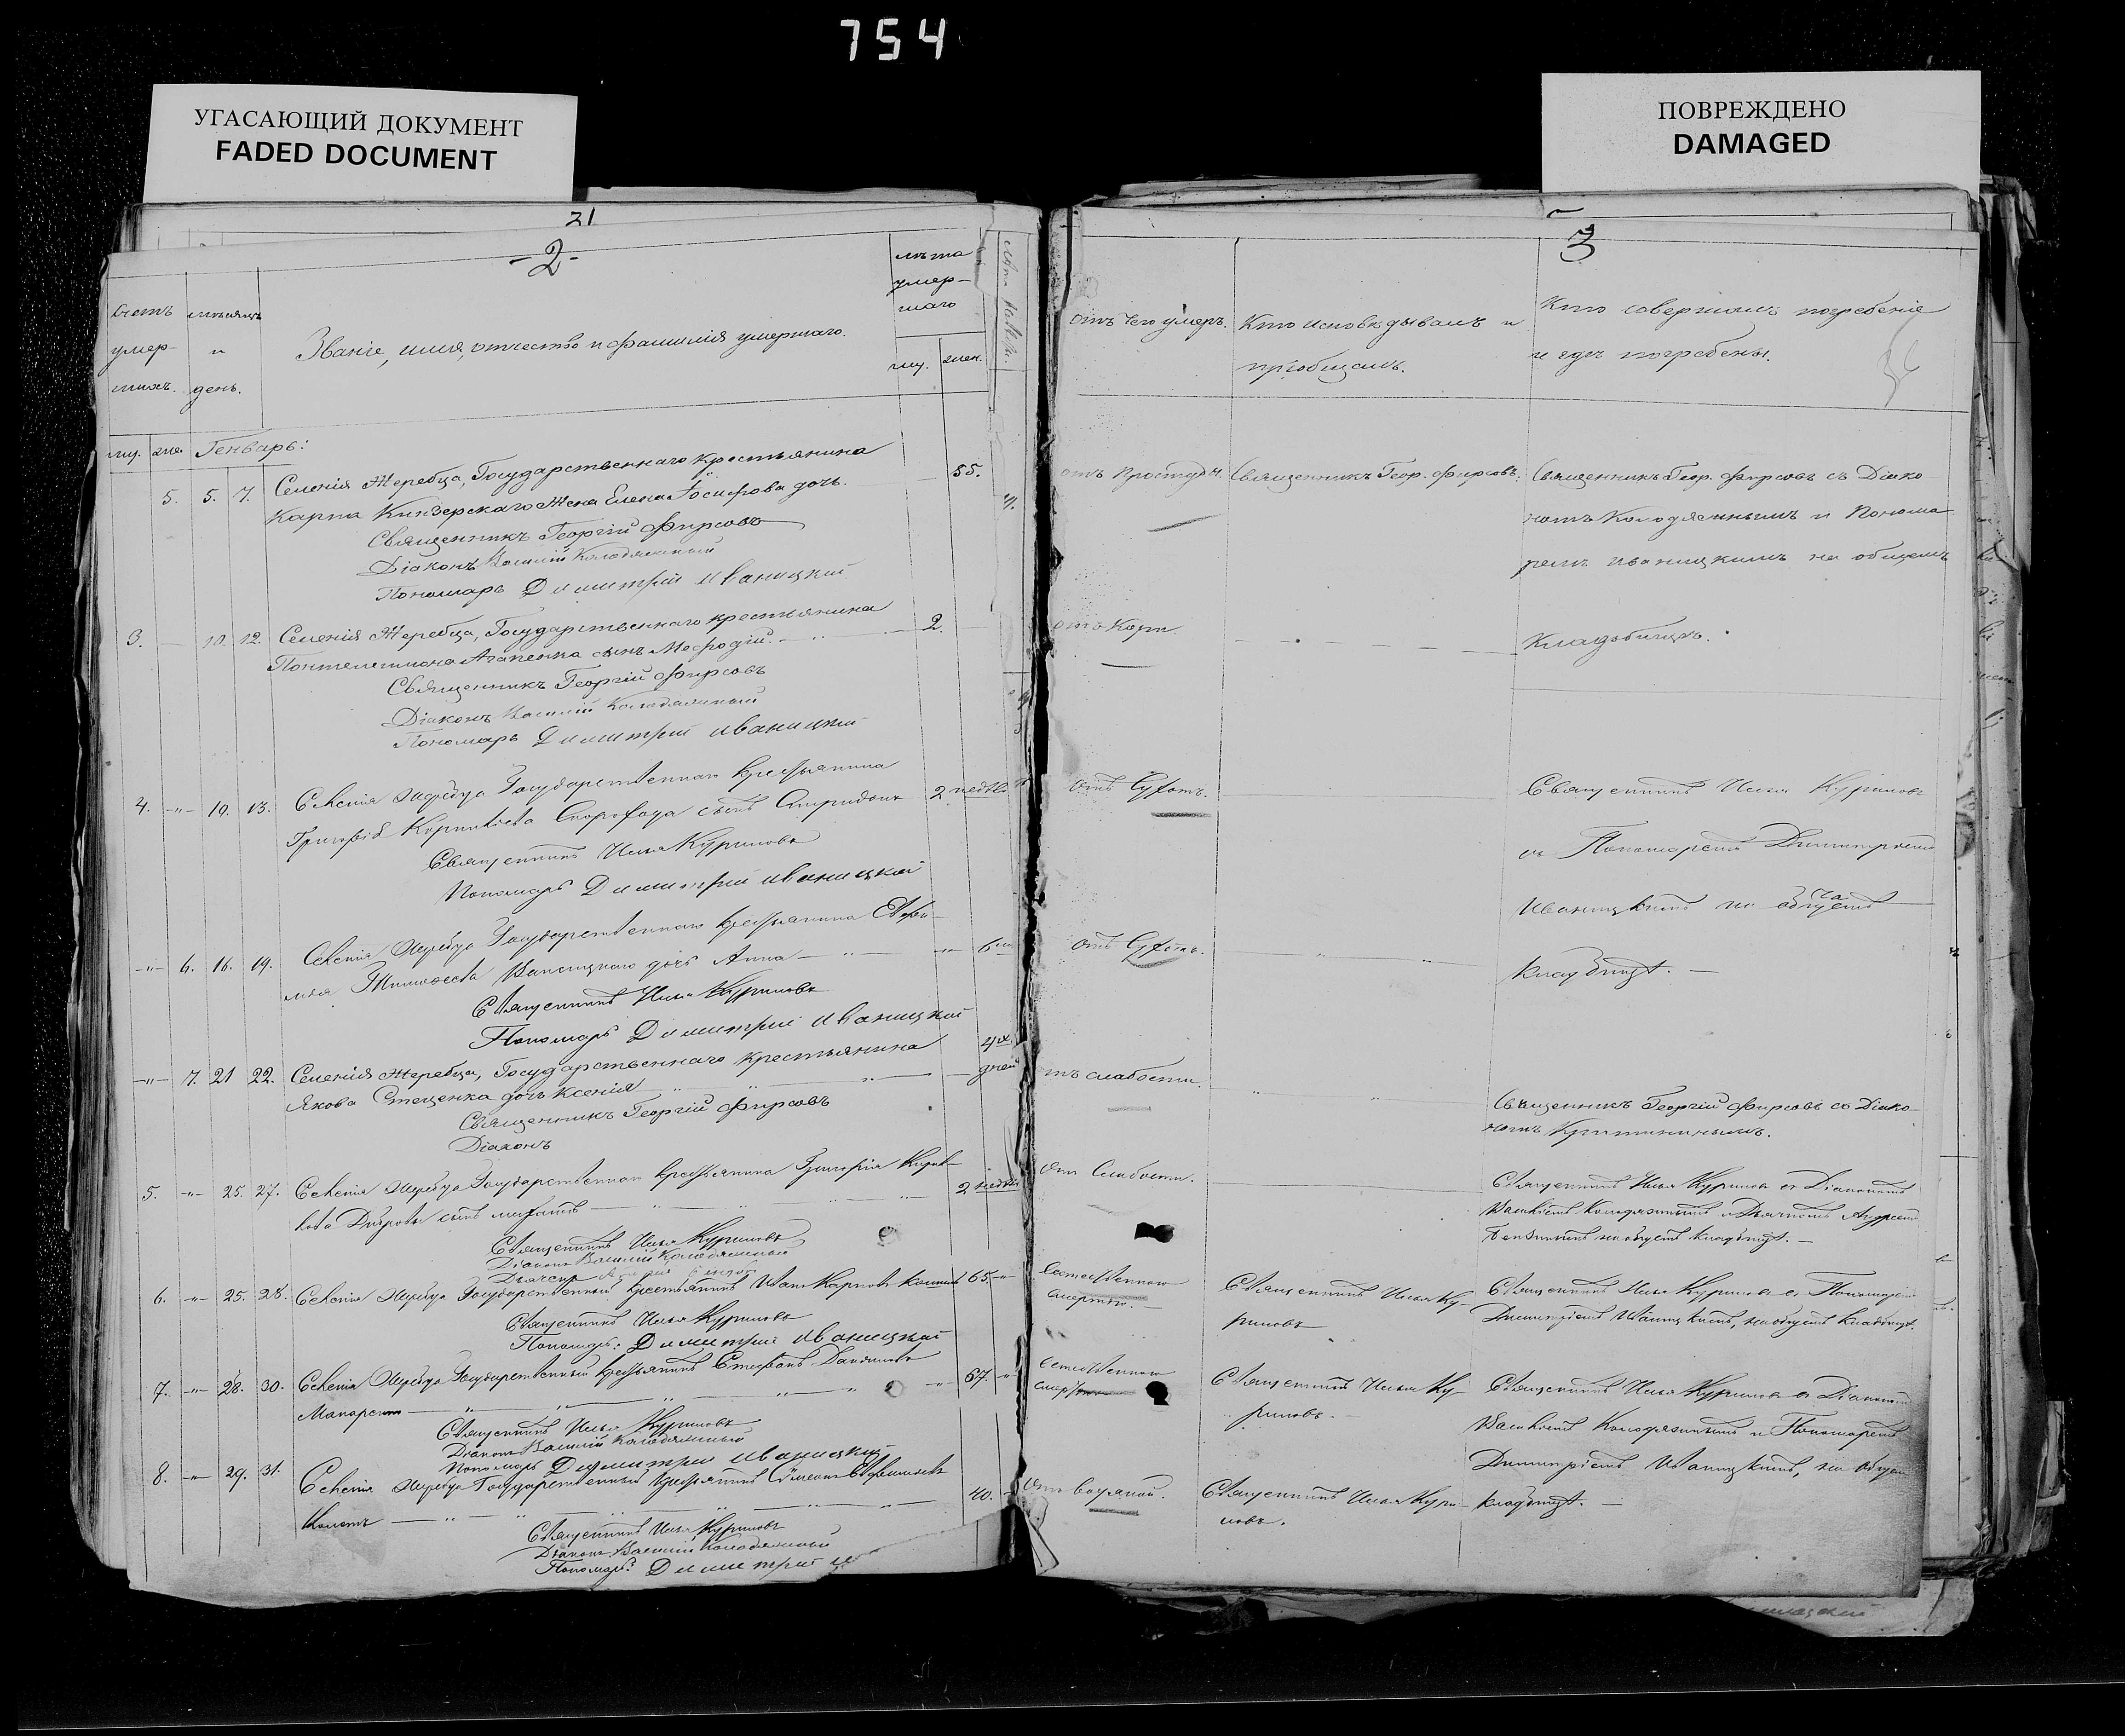 754
УГАСАЮЩИЙ ДОКУМЕНТ
FADED DOCUMENT
ПОВРЕЖДЕНО
DAMAGED
31
-2-
умер-
шихъ.
и
день.
Званіе, имя, отчество и фамилія умершаго.
лѣта
умер-
шаго
му. жен.
му. жен. Генварь:
5. 5. 7. Селенія Жеребца, Государственнаго крестьянина 55.
Карпа Кинзерскаго жена Елена Іосифова дочь.
Священникъ Георгій Фирсовъ
Діаконъ Василій Колодяжный
Пономарь Димитрій Иваницкій
3. — 10. 12. Селенія Жеребца, Государственнаго крестьянина 2.
Пантелеимона Агапенка сынъ Мефодій.
Священникъ Георгій Фирсовъ
Діаконъ Василій Колодяжный
Пономарь Димитрій Иваницкій
4. -"- 10. 13. Селенія Жеребца Государственнаго крестьянина 2 недѣли
Григорія сынъ Спиридонъ
Священникъ Илья Куриловъ
Пономарь Димитрій Иваницкій
-"- 6. 16. 19. Селенія Жеребца Государственнаго крестьянина Евфи-
мія Тимофеева дочь Анна
Священникъ Илья Куриловъ
Пономарь Димитрій Иваницкій
-"- 7. 21 22. Селенія Жеребца, Государственнаго крестьянина 4х дней
Якова Стеценка дочь Ксенія
Священникъ Георгій Фирсовъ
Діаконъ
5. -"- 25. 27. Селенія Жеребца Государственнаго крестьянина Григорія 2 недѣли
сынъ
Священникъ Илья Куриловъ
Діаконъ Василій Колодяжный
6. -"- 25. 28. Селенія Жеребца Государственный крестьянинъ Иванъ Карповъ 65.
Священникъ Илья Куриловъ
Пономарь: Димитрій Иваницкій
7. -"- 28. 30. Селенія Жеребца Государственный крестьянинъ Стефанъ 67.
Макаренко
Священникъ Илья Куриловъ
Діаконъ Василій Колодяжный
Пономарь Димитрій Иваницкій
8. -"- 29. 31. Селенія Жеребца Государственный крестьянинъ Сѵмеонъ Евфимовъ 40.
Священникъ Илья Куриловъ
Діаконъ Василій Колодяжный
Пономарь: Димитрій
3
отъ чего умеръ.
Кто исповѣдывалъ и
пріобщалъ.
Кто совершалъ погребеніе
и гдѣ погребены.
отъ простуды. Священникъ Геор. Фирсовъ. Священникъ Геор. Фирсовъ съ Діако
номъ Колодяжнымъ и Понома
ремъ Иваницкимъ на общемъ
отъ кори
кладбищѣ.
отъ Сухотъ.
Священникъ Илья Куриловъ
съ Пономаремъ Димитріемъ
Иваницкимъ на общемъ
отъ Сухотъ.
кладбищѣ.
отъ слабости.
Священникъ Георгій Фирсовъ съ Діако-
номъ
отъ Слабости.
Священникъ Илья Куриловъ съ Діакономъ
Василіемъ Колодяжнымъ и Дьячкомъ Андреемъ
на общемъ кладбищѣ.
Естественною
смертью.
Священникъ Илья Ку-
риловъ
Священникъ Илья Куриловъ съ Пономаремъ
Димитріемъ Иваницкимъ, на общемъ кладбищѣ.
Естественною
смертью
Священникъ Илья Ку-
риловъ.
Священникъ Илья Куриловъ съ Діакономъ
Василіемъ Колодяжнымъ и Пономаремъ
Димитріемъ Иваницкимъ, на общемъ
отъ водяной.
Священникъ Илья Кури-
ловъ.
кладбищѣ.